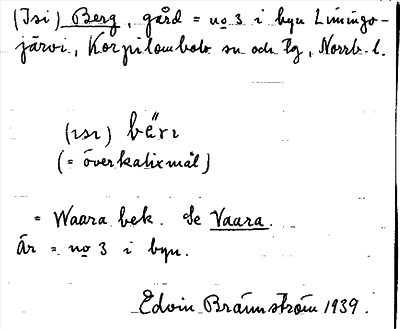 (Isi) Berg, gård = no 3 i byn Liiningo-
järvi, Korpilombolo sn och tg, Norrb. l.
(ısı) bärı
(= överkalixmål)
= Waara bek. Se Vaara.
Är = no 3 i byn.
Edvin Brännström 1939.